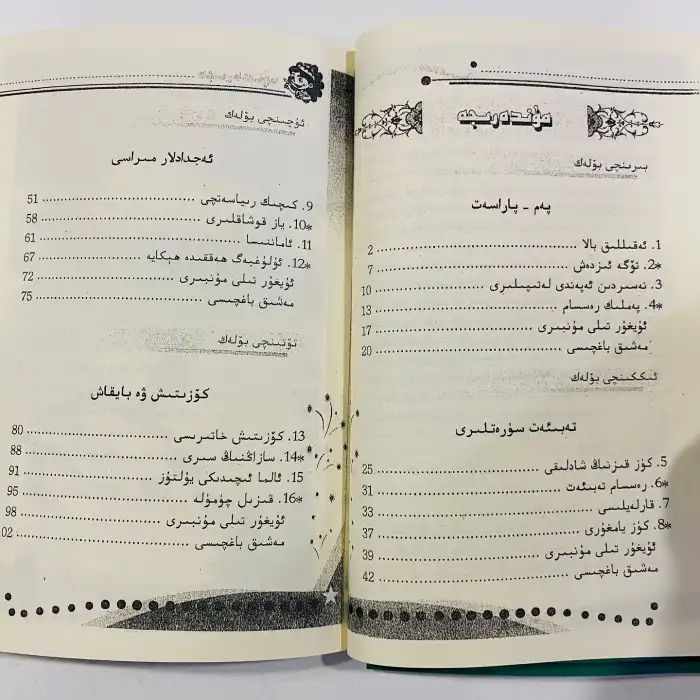 مۇندەرىجە
بىرىنچى بۆلەك
پەم - پاراسەت
1. ئەقىللىق بالا 2
*2. تۆگە ئىزدەش 7
3. نەسىردىن ئەپەندى لەتىپىلىرى 10
*4. پەملىك رەسسام 13
ئۇيغۇر تىلى مۇنبىرى 17
مەشىق باغچىسى 20
ئىككىنچى بۆلەك
تەبىئەت سۈرەتلىرى
5. كۈز قىزنىڭ شادلىقى 25
*6. رەسسام تەبىئەت 31
7. قارلەيلىسى 33
*8. كۈز يامغۇرى 37
ئۇيغۇر تىلى مۇنبىرى 39
مەشىق باغچىسى 42
ئۈچىنچى بۆلەك
ئەجدادلار مىراسى
9. كىچىك رىياسەتچى 51
*10. ياز قوشاقلىرى 58
11. ئاماننىسا 61
*12. ئۇلۇغبەگ ھەققىدە ھېكايە 67
ئۇيغۇر تىلى مۇنبىرى 72
مەشىق باغچىسى 75
تۆتىنچى بۆلەك
كۆزىتىش ۋە بايقاش
13. كۆزىتىش خاتىرىسى 80
*14. سازاڭنىڭ سىرى 88
15. ئالما ئىچىدىكى يۇلتۇز 91
*16. قىزىل چۈمۈلە 95
ئۇيغۇر تىلى مۇنبىرى 98
مەشىق باغچىسى 02